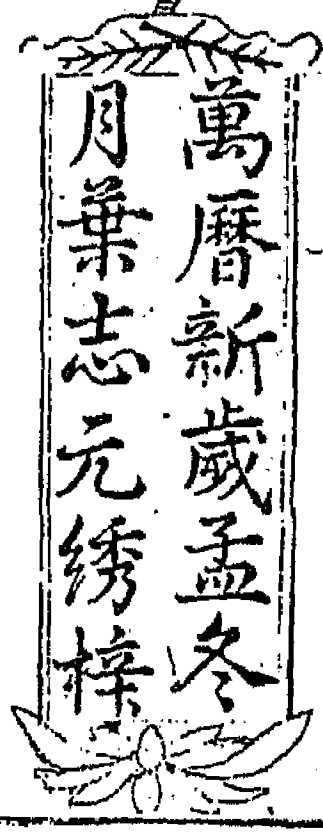 萬曆新歲孟冬
月葉志元綉梓